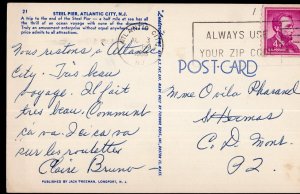 21
STEEL PIER, ATLANTIC CITY, N.J.
A trip to the end of the Steel Pier — a half mile at sea has
all the thrill of an ocean voyage with none of the discomforts.
Truly an amusement enterprise without equal anywhere. One small
price admits to all attractions.
Nous restons à Atlantic
City. Très beau
voyage. Il fait
très beau. Comment
ça va. Ici ça va
sur les roulettes
Claire Bruno
PUBLISHED BY JACK FREEMAN, LONGPORT, N.J.
ALWAYS USE
YOUR ZIP CO
4¢
POST CARD
Mme Ovila
St
C. D. Mont.
P.Q.